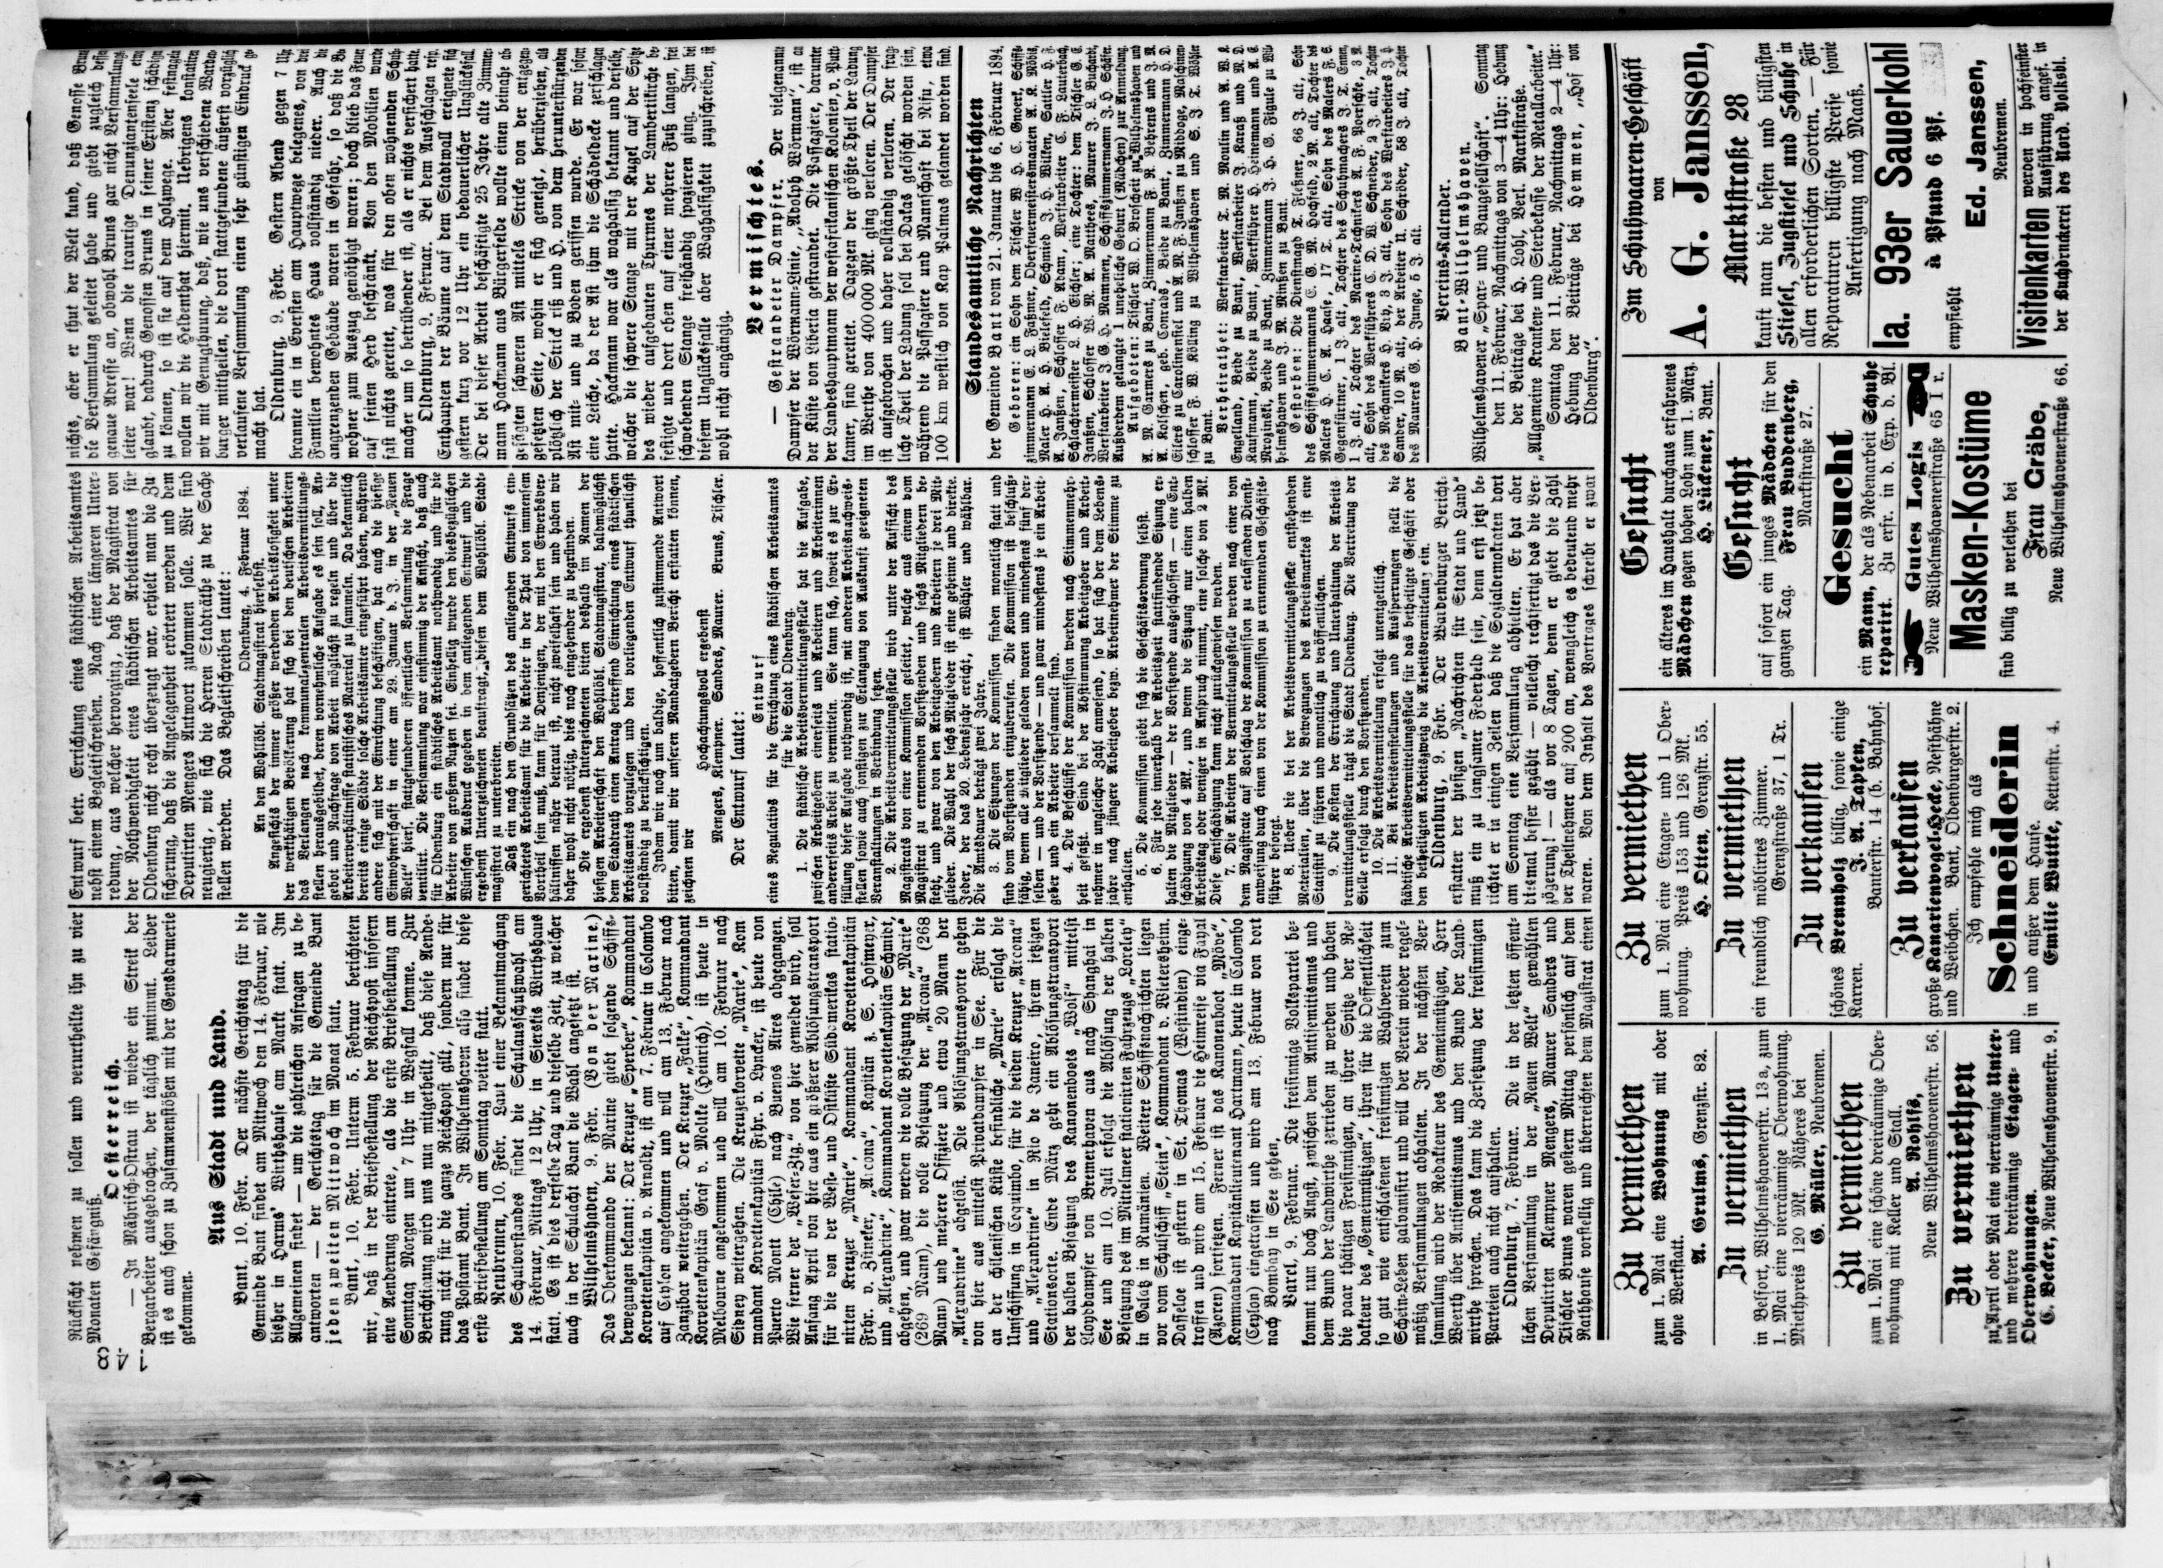 148
Rücksicht nehmen zu sollen und verurtheilte ihn zu vier
Monaten Gefängniß.
Oesterreich.
— In Mährisch-Ostrau ist wieder ein Streik der
Bergarbeiter ausgebrochen, der täglich zunimmt. Leider
ist es auch schon zu Zusammenstößen mit der Gensdarmerie
gekommen.
Aus Stadt und Land.
Bant, 10. Febr. Der nächste Gerichtstag für die
Gemeinde Bant findet am Mittwoch den 14. Februar, wie
bisher in Harms' Wirthshause am Markt statt. Im
Allgemeinen findet — um die zahlreichen Anfragen zu be-
antworten — der Gerichtstag für die Gemeinde Bant
jeden zweiten Mittwoch im Monat statt.
Bant, 10. Febr. Unterm 5. Februar berichteten
wir, daß in der Briefbestellung der Reichspost insofern
eine Aenderung eintrete, als die erste Briefbestellung am
Sonntag Morgen um 7 Uhr in Wegfall komme. Zur
Berichtigung wird uns nun mitgetheilt, daß diese Aende-
rung nicht für die ganze Reichspost gilt, sondern nur für
das Postamt Bant. In Wilhelmshaven also findet diese
erste Briefbestellung am Sonntag weiter statt.
Neubremen, 10. Febr. Laut einer Bekanntmachung
des Schulvorstandes findet die Schulausschußwahl am
14. Februar, Mittags 12 Uhr, in Siersits Wirthshaus
statt. Es ist dies derselbe Tag und dieselbe Zeit, zu welcher
auch in der Schulacht Bant die Wahl angesetzt ist.
Wilhelmshaven, 9. Febr. (Von der Marine.)
Das Oberkommando der Marine giebt folgende Schiffs-
bewegungen bekannt: Der Kreuzer „Sperber“, Kommandant
Korvettenkapitän v. Arnoldt, ist am 7. Februar in Colombo
auf Ceylon angekommen und will am 13. Februar nach
Zanzibar weitergehen. Der Kreuzer „Falke“, Kommandant
Korvettenkapitän Graf v. Moltke (Heinrich), ist heute in
Melbourne angekommen und will am 10. Februar nach
Sidney weitergehen. Die Kreuzerkorvette „Marie“, Kom-
mandant Korvettenkapitän Frhr. v. Lyncker, ist heute von
Puerto Montt (Chile) nach Buenos Aires abgegangen.
Wie ferner der „Weser-Ztg.“ von hier gemeldet wird, soll
Anfang April von hier aus ein größerer Ablösungstransport
für die von der West- und Ostküste Südamerikas statio-
nirten Kreuzer „Marie“, Kommandant Korvettenkapitän
Frhr. v. Lyncker, „Arcona“, Kapitän z. S. Hofmeyer,
und „Alexandrine“, Kommandant Korvettenkapitän Schmidt,
abgehen, und zwar werden die volle Besatzung der „Marie“
(269 Mann), die volle Besatzung der „Arcona“ (268
Mann) und mehrere Offiziere und etwa 20 Mann der
„Alexandrine“ abgelöst. Die Ablösungstransporte gehen
von hier aus mittelst Privatdampfer in See. Für die
an der chilenischen Küste befindliche „Marie“, erfolgt die
Umschiffung in Coquimbo, für die beiden Kreuzer „Arcona“
und „Alexandrine“ in Rio de Janeiro, ihrem jetzigen
Stationsorte. Ende März geht ein Ablösungstransport
der halben Besatzung des Kanonenboots „Wolf“ mittelst
Lloyddampfer von Bremerhaven aus nach Shanghai in
See und am 10. Juli erfolgt die Ablösung der halben
Besatzung des im Mittelmeer stationirten Fahrzeugs „Loreley“
in Galatz in Rumänien. Weitere Schiffsnachrichten liegen
vor vom Schulschiff „Stein“, Kommandant v. Wietersheim.
Dasselbe ist gestern in St. Thomas (Westindien) einge-
troffen und wird am 15. Februar die Heimreise via Fayal
(Azoren) fortsetzen. Ferner ist das Kanonenboot „Möve“,
Kommandant Kapitänlieutenant Hartmann, heute in Colombo
(Ceylon) eingetroffen und wird am 13. Februar von dort
nach Bombay in See gehen.
Varel, 9. Februar. Die freisinnige Volkspartei be-
kommt nun doch Angst, zwischen dem Antisemitismus und
dem Bund der Landwirthe zerrieben zu werden und haben
die paar thätigen Freisinnigen, an ihrer Spitze der Re-
dakteur des „Gemeinnützigen“, ihren für die Oeffentlichkeit
so gut wie entschlafenen freisinnigen Wahlverein zum
Schein-Leben galvanisirt und will der Verein wieder regel-
mäßig Versammlungen abhalten. In der nächsten Ver-
sammlung wird der Redakteur des Gemeinnützigen, Herr
Beerth über Antisemitismus und den Bund der Land-
wirthe sprechen. Das kann die Zersetzung der freisinnigen
Parteien auch nicht aufhalten.
Oldenburg, 7. Februar. Die in der letzten öffent-
lichen Versammlung in der „Neuen Welt“ gewählten
Deputirten Klempner Mengers, Maurer Sanders und
Tischler Bruns waren gestern Mittag persönlich auf dem
Rathhause vorstellig und überreichten dem Magistrat einen
Entwurf betr. Errichtung eines städtischen Arbeitsamtes
nebst einem Begleitschreiben. Nach einer längeren Unter-
redung, aus welcher hervorging, daß der Magistrat von
der Nothwendigkeit eines städtischen Arbeitsamtes für
Oldenburg nicht recht überzeugt war, erhielt man die Zu-
sicherung, daß die Angelegenheit erörtert werden und dem
Deputirten Mengers Antwort zukommen solle. Wir sind
neugierig, wie sich die Herren Stadträthe zu der Sache
stellen werden. Das Begleitschreiben lautet:
Oldenburg, 4. Februar 1894.
An den Wohllöbl. Stadtmagistrat hierselbst.
Angesichts der immer größer werdenden Arbeitslosigkeit unter
der werthätigen Bevölkerung hat sich bei den deutschen Arbeitern
das Verlangen nach kommunalzentralen Arbeitsvermittlungs-
stellen herausgebildet, deren vornehmliche Aufgabe es sein soll, An-
gebot und Nachfrage von Arbeit möglichst zu regeln und über die
Arbeiterverhältnisse statistisches Material zu sammeln. Da bekanntlich
bereits einige Städte solche Arbeitsämter eingeführt haben, während
andere sich mit der Einrichtung beschäftigen, hat auch die hiesige
Einwohnerschaft in einer am 29. Januar d. J. in der „Neuen
Welt“ hierf. stattgefundenen öffentlichen Versammlung die Frage
ventilirt. Die Versammlung war einstimmig der Ansicht, daß auch
für Oldenburg ein städtisches Arbeitsamt nothwendig und für die
Arbeiter von großem Nutzen sei. Einhellig wurde den diesbezüglichen
Wünschen Ausdruck gegeben in dem anliegenden Entwurf und die
ergebenst Unterzeichneten beauftragt, diesen dem Wohllöbl. Stadt-
magistrat zu unterbreiten.
Daß ein nach den Grundsätzen des anliegenden Entwurfs ein-
gerichtetes Arbeitsamt für die Arbeiter in der That von immensem
Vortheil sein muß, kann für Denjenigen, der mit den Erwerbsver-
hältnissen näher betraut ist, nicht zweifelhaft sein und haben wir
daher wohl nicht nöthig, dies noch eingehender zu begründen.
Die ergebenst Unterzeichneten bitten deshalb im Namen der
hiesigen Arbeiterschaft den Wohllöbl. Stadtmagistrat, baldmöglichst
dem Stadtrath einen Antrag betreffend Einrichtung eines städtischen
Arbeitsamtes vorzulegen und den vorliegenden Entwurf thunlichst
vollständig zu berücksichtigen.
Indem wir noch um baldige, hoffentlich zustimmende Antwort
bitten, damit wir unseren Mandatgebern Bericht erstatten können,
zeichnen wir
Hochachtungsvoll ergebenst
Mengers, Klempner. Sanders, Maurer. Bruns, Tischler.
Der Entwurf lautet:
Entwurf
eines Regulativs für die Errichtung eines städtischen Arbeitsamtes
für die Stadt Oldenburg.
1. Die städtische Arbeitsvermittelungsstelle hat die Aufgabe,
zwischen Arbeitgebern einerseits und Arbeitern und Arbeiterinnen
andererseits Arbeit zu vermitteln. Sie kann sich, soweit es zur Er-
füllung dieser Aufgabe nothwendig ist, mit anderen Arbeitsnachweis-
stellen sowie auch sonstigen zur Erlangung von Auskunft geeigneten
Veranstaltungen in Verbindung setzen.
2. Die Arbeitsvermittelungsstelle wird unter der Aufsicht des
Magistrats von einer Kommission geleitet, welche aus einem vom
Magistrat zu ernennenden Vorsitzenden und sechs Mitgliedern be-
steht, und zwar von den Arbeitgebern und Arbeitern je drei Mit-
glieder. Die Wahl der sechs Mitglieder ist eine geheime und direkte.
Jeder, der das 20. Lebensjahr erreicht, ist Wähler und wählbar.
Die Amtsdauer beträgt zwei Jahre.
3. Die Sitzungen der Kommission finden monatlich statt und
sind vom Vorsitzenden einzuberufen. Die Kommission ist beschluß-
fähig, wenn alle Mitglieder geladen waren und mindestens fünf der-
selben — und der Vorsitzende — und zwar mindestens je ein Arbeit-
geber und Arbeiter versammelt sind.
4. Die Beschlüsse der Kommission werden nach Stimmenmehr-
heit gefaßt. Sind bei der Abstimmung Arbeitgeber und Arbeit-
nehmer in ungleicher Zahl anwesend, so hat sich der dem Lebens-
jahre nach jüngere Arbeitgeber bezw. Arbeitnehmer der Stimme zu
enthalten.
5. Die Kommission giebt sich die Geschäftsordnung selbst.
6. Für jede innerhalb der Arbeitszeit stattfindende Sitzung er-
halten die Mitglieder — der Vorsitzende ausgeschlossen — eine Ent-
schädigung von 4 Mk., und wenn die Sitzung nur einen halben
Arbeitstag oder weniger in Anspruch nimmt, eine solche von 2 Mk.
Diese Entschädigung kann nicht zurückgewiesen werden.
7. Die Arbeiten der Vermittelungsstelle werden nach einer von
dem Magistrate auf Vorschlag der Kommission zu erlassenden Dienst-
anweisung durch einen von der Kommission zu ernennenden Geschäfts-
führer besorgt.
8. Ueber die bei der Arbeitsvermittelungsstelle entstehenden
Materialien, über die Bewegungen des Arbeitsmarktes ist eine
Statistik zu führen und monatlich zu veröffentlichen.
9. Die Kosten der Errichtung und Unterhaltung der Arbeits-
vermittelungsstelle trägt die Stadt Oldenburg. Die Vertretung der
Stelle erfolgt durch den Vorsitzenden.
10. Die Arbeitsvermittelung erfolgt unentgeltlich.
11. Bei Arbeitseinstellungen und Aussperrungen stellt die
städtische Arbeitsvermittelungsstelle für das betheiligte Geschäft oder
den betheiligten Arbeitszweig die Arbeitsvermittelung ein.
Oldenburg, 9. Febr. Der Wardenburger Bericht-
erstatter der hiesigen „Nachrichten für Stadt und Land“
muß ein zu langsamer Federheld sein, denn erst jetzt be-
richtet er in einigen Zeilen daß die Sozialdemokraten dort
am Sonntag eine Versammlung abhielten. Er hat aber
diesmal besser gezählt — vielleicht rechtfertigt das die Ver-
zögerung! — als vor 8 Tagen, denn er giebt die Zahl
der Theilnehmer auf 200 an, wenngleich es bedeutend mehr
waren. Von dem Inhalt des Vortrages schreibt er zwar
nichts, aber er thut der Welt kund, daß Genosse Brun
die Versammlung geleitet habe und giebt zugleich dessen
genaue Adresse an, obwohl Bruns gar nicht Versammlungs-
leiter war! Wenn die traurige Denunziantenseele etwa
glaubt, dadurch Genossen Bruns in seiner Existenz schädigen
zu können, so ist sie auf dem Holzwege. Aber festnageln
wollen wir die Heldenthat hiermit. Uebrigens konstatiren
wir mit Genugthuung, daß, wie uns verschiedene Warden-
burger mittheilen, die dort stattgefundene äußerst vorzüglich
verlaufene Versammlung einen sehr günstigen Eindruck ge-
macht hat.
Oldenburg, 9. Febr. Gestern Abend gegen 7 Uhr
brannte ein in Eversten am Hauptwege belegenes, von drei
Familien bewohntes Haus vollständig nieder. Auch die
angrenzenden Gebäude waren in Gefahr, so daß die Be-
wohner zum Auszug genöthigt waren; doch blieb das Feuer
auf seinen Herd beschränkt. Von den Mobilien wurde
fast nichts gerettet, was für den oben wohnenden Schuh-
macher um so betrübender ist, als er nichts versichert hatte.
Oldenburg, 9. Februar. Bei dem Ausschlagen resp.
Enthaupten der Bäume auf dem Stadtwall ereignete sich
gestern kurz vor 12 Uhr ein bedauerlicher Unglücksfall.
Der bei dieser Arbeit beschäftigte 25 Jahre alte Zimmer-
mann Hackmann aus Bürgerfelde wollte einen beinahe ab-
gesägten schweren Ast mittels Stricke von der entgegen-
gesetzten Seite, wohin er sich geneigt, herüberziehen, als
plötzlich der Strick riß und H. von dem herunterstürzenden
Ast mit- und zu Boden gerissen wurde. Er war sofort
eine Leiche, da der Ast ihm die Schädeldecke zerschlagen
hatte. Hackmann war als waghalsig bekannt und derselbe,
welcher die schwere Stange mit der Kugel auf der Spitze
des wieder aufgebauten Thurmes der Lambertikirche be-
festigte und dort oben auf einer mehrere Fuß langen, frei
schwebenden Stange freihändig spazieren ging. Ihm bei
diesem Unglücksfalle aber Waghalsigkeit zuzuschreiben, ist
wohl nicht angängig.
Vermischtes.
— Gestrandeter Dampfer. Der vielgenannte
Dampfer der Wörmann-Linie, „Adolph Wörmann“, ist an
der Küste von Liberia gestrandet. Die Passagiere, darunter
der Landeshauptmann der westafrikanischen Kolonien, v. Putt-
kamer, sind gerettet. Dagegen der größte Theil der Ladung
im Werthe von 400 000 Mk. ging verloren. Der Dampfer
ist aufgebrochen und daher vollständig verloren. Der frag-
liche Theil der Ladung soll bei Dakas gelöscht worden sein,
während die Passagiere und Mannschaft bei Nifu, etwa
100 km westlich von Kap Palmas gelandet worden sind.
Standesamtliche Nachrichten
der Gemeinde Bant vom 21. Januar bis 6. Februar 1894.
Geboren: ein Sohn dem Tischler W. H. C. Gnoert, Schiffs-
zimmermann C. L. Faßmer, Oberfeuermeistersmaaten A. K. Möbis,
Maler H. A. H. Bielefeld, Schmied J. H. Wilken, Sattler H. F.
A. Janßen, Schlosser F. Adam, Werftarbeiter C. F. Lauterbach,
Schlachtermeister L. H. Eichler; eine Tochter: dem Tischler G. E.
Janßen, Schlosser M. A. Matthees, Maurer J. L. Buchardt,
Werftarbeiter J G. H. Mammen, Schiffszimmermann J. H. Schäfer.
Außerdem gelangte 1 uneheliche Geburt (Mädchen) zur Anmeldung.
Aufgeboten: Tischler W. O. Broscheit zu Wilhelmshaven und
A. M. Garmers zu Bant, Zimmermann F. R. Behrens und J. A.
A. Kolschen, geb. Conrads, Beide zu Bant, Zimmermann H. D.
Eilers zu Carolinensiel und A. M. F. Janßen zu Middoge, Maschinen-
schlosser F. W. Rölling zu Wilhelmshaven und S. J. T. Möhler
zu Bant.
Verheirathet: Werftarbeiter T. M. Moulin und A. W. K.
Engelland, Beide zu Bant, Werftarbeiter J. Karaß und M. D.
Kaufmann, Beide zu Bant, Werkführer H. Heinemann und A. E.
Mroginski, Beide zu Bant, Zimmermann J. H. G. Figule zu Wil-
helmshaven und J. M. Minßen zu Bant.
Gestorben: Die Dienstmagd T. Fleßner, 66 J. alt, Sohn
des Schiffszimmermanns C. G. M. Hopfeld, 2 M. alt, Tochter des
Malers H. C. A. Haase, 17 T. alt, Sohn des Malers F. S.
Gegenfürtner, 1 J. alt, Tochter des Schuhmachers J. T. Emmen,
1 J. alt, Tochter des Marine-Technikers A. F. Poerschke, 3 M.
alt, Sohn des Werkführers C. D. W. Schneider, 2 J. alt, Tochter
des Mechanikers H. H. Bitz, 3 J. alt, Sohn des Werftarbeiters J. H.
Sander, 10 M. alt, der Arbeiter U. Schröder, 58 J. alt, Tochter
des Maurers G. H. Junge, 5 J. alt.
Vereins-Kalender.
Bant-Wilhelmshaven.
Wilhelmshavener „Spar- und Baugesellschaft“. Sonntag
den 11. Februar, Nachmittags von 3—4 Uhr: Hebung
der Beiträge bei H. Lohl, Verl. Marktstraße.
„Allgemeine Kranken- und Sterbekasse der Metallarbeiter.“
Sonntag den 11. Februar, Nachmittags 2—4 Uhr:
Hebung der Beiträge bei Hemmen, „Hof von
Oldenburg“.
Zu vermiethen
zum 1. Mai eine Wohnung mit oder
ohne Werkstatt.
A. Grulms, Grenzstr. 82.
Zu vermiethen
in Belfort, Wilhelmshavenerstr. 13a, zum
1. Mai eine vierräumige Oberwohnung.
Miethpreis 120 Mk. Näheres bei
G. Müller, Neubremen.
Zu vermiethen
zum 1. Mai eine schöne dreiräumige Ober-
wohnung mit Keller und Stall.
A. Rohlfs,
Neue Wilhelmshavenerstr. 56.
Zu vermiethen
zu April oder Mai eine vierräumige Unter-
und mehrere dreiräumige Etagen- und
Oberwohnungen.
C. Becker, Neue Wilhelmshavenerstr. 9.
Zu vermiethen
zum 1. Mai eine Etagen- und 1 Ober-
wohnung. Preis 153 und 126 Mk.
H. Otten, Grenzstr. 55.
Zu vermiethen
ein freundlich möblirtes Zimmer.
Grenzstraße 37, 1 Tr.
Zu verkaufen
schönes Brennholz billig, sowie einige
Karren.
J. A. Tapken,
Banterstr. 14 (b. Bahnhof.
Zu verkaufen
große Kanarienvogel-Hecke, Nesthähne
und Weibchen. Bant, Oldenburgerstr. 2.
Ich empfehle mich als
Schneiderin
in und außer dem Hause.
Emilie Wuttke, Kettenstr. 4.
Gesucht
ein älteres im Haushalt durchaus erfahrenes
Mädchen gegen hohen Lohn zum 1. März.
H. Lückener, Bant.
Gesucht
auf sofort ein junges Mädchen für den
ganzen Tag. Frau Buddenberg,
Marktstraße 27.
Gesucht
ein Mann, der als Nebenarbeit Schuhe
reparirt. Zu erfr. in d. Exp. d. Bl.
Gutes Logis
Neue Wilhelmshavenerstraße 65 I r.
Masken-Kostüme
sind billig zu verleihen bei
Frau Gräbe,
Neue Wilhelmshavenerstraße 66.
Im Schuhwaaren-Geschäft
von
A. G. Janssen,
Marktstraße 28
kauft man die besten und billigsten
Stiefel, Zugstiefel und Schuhe in
allen erforderlichen Sorten. — Für
Reparaturen billigste Preise sowie
Anfertigung nach Maaß.
Ia. 93er Sauerkohl
à Pfund 6 Pf.
empfiehlt
Ed. Janssen,
Neubremen.
Visitenkarten werden in hochfeinster
Ausführung angef. in
der Buchdruckerei des Nord. Volksbl.